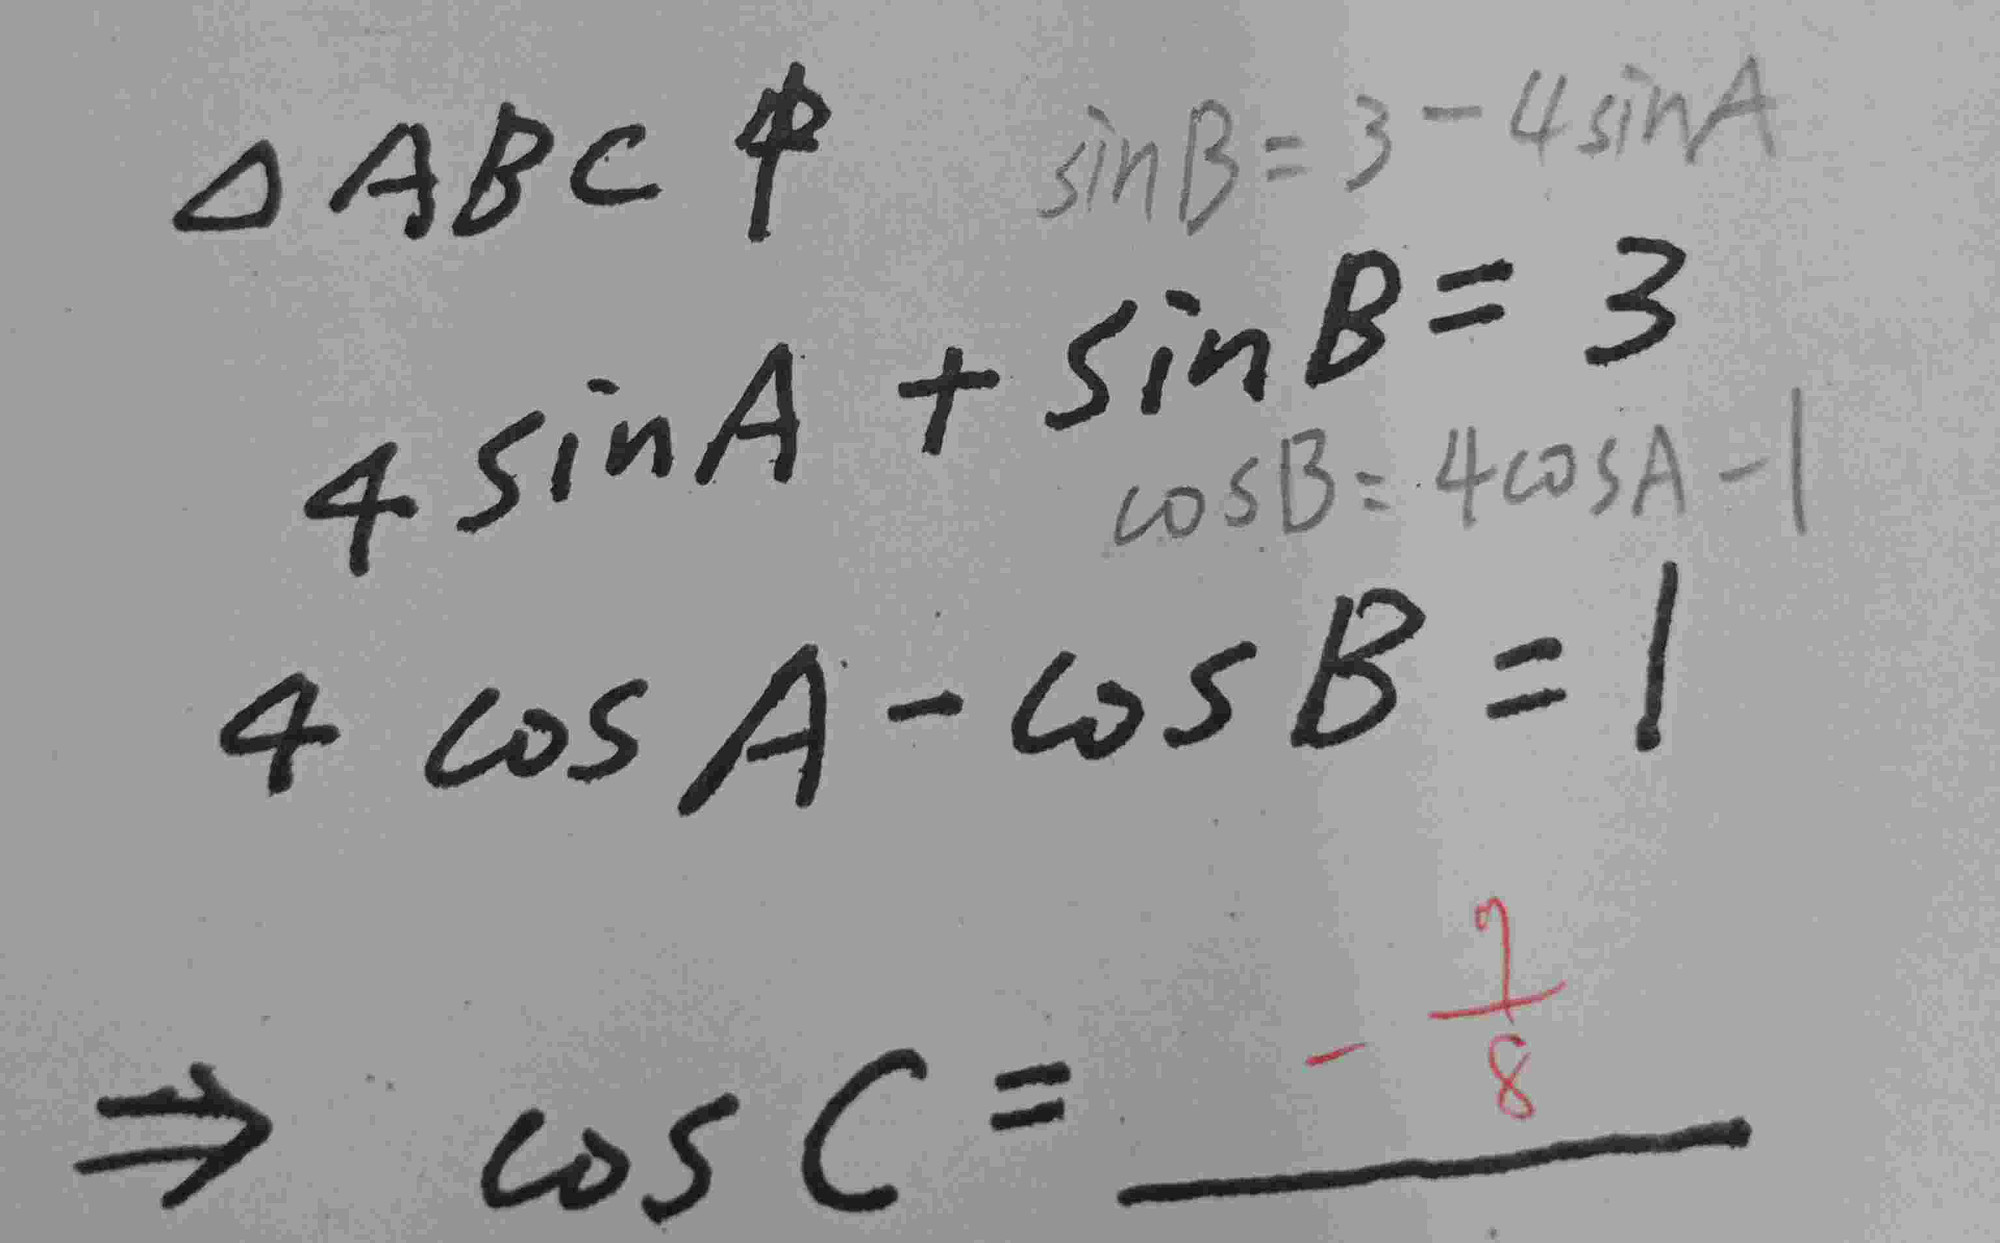 △ABC中
sinB=3-4sinA
4 sinA + sinB = 3
cosB=4cosA-1
4 cos A - cos B = 1
⇒ cos C = -7/8